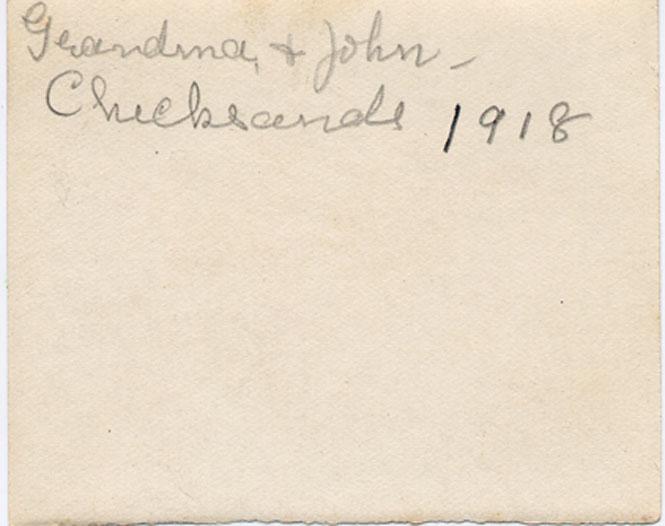 Grandma, + John -
Chicksands 1918